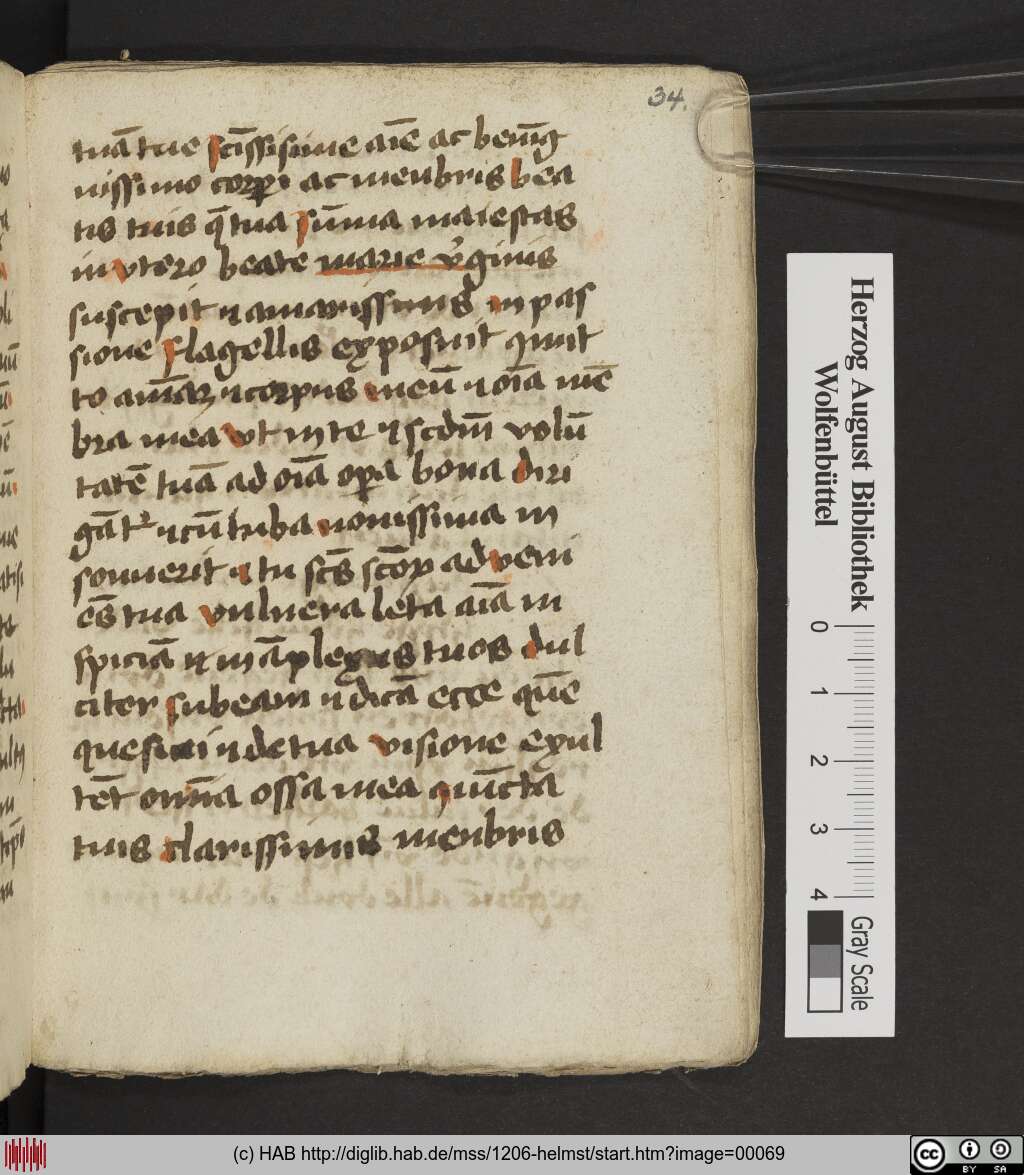 34.
tuā tue sc̄issiꝰime aīe ac benīg
nissimo corꝑi ac menbris bea
tis tuis q̄ tua sūma maiestas
in vtero beate marie v̓ginis
suscepit ⁊ amarissimis in pas
sione flagellis exposuit ꝯmit
to aīam ⁊ corpus meū ⁊ oīa mē
bra mea vt in te ⁊ scdm̄ volū
tatē tuā ad oīa oꝑa bona diri
gāt᷑ ⁊ cū tuba nouissima in
sonuerit ⁊ tu scs̄ scōꝝ ad veni
es̄ tua vulnera leta aīa in
spiciā ⁊ in āplexus tuos dul
citer subeam ⁊ dicā ecce quē
quesiui ⁊ de tua visione exul
tēt om̄a ossa mea ꝯiūcta
tuis clarissimis menbris
Herzog August Bibliothek
Wolfenbüttel
0 1 2 3 4
Gray Scale
(c) HAB http://diglib.hab.de/mss/1206-helmst/start.htm?image=00069
cc BY SA